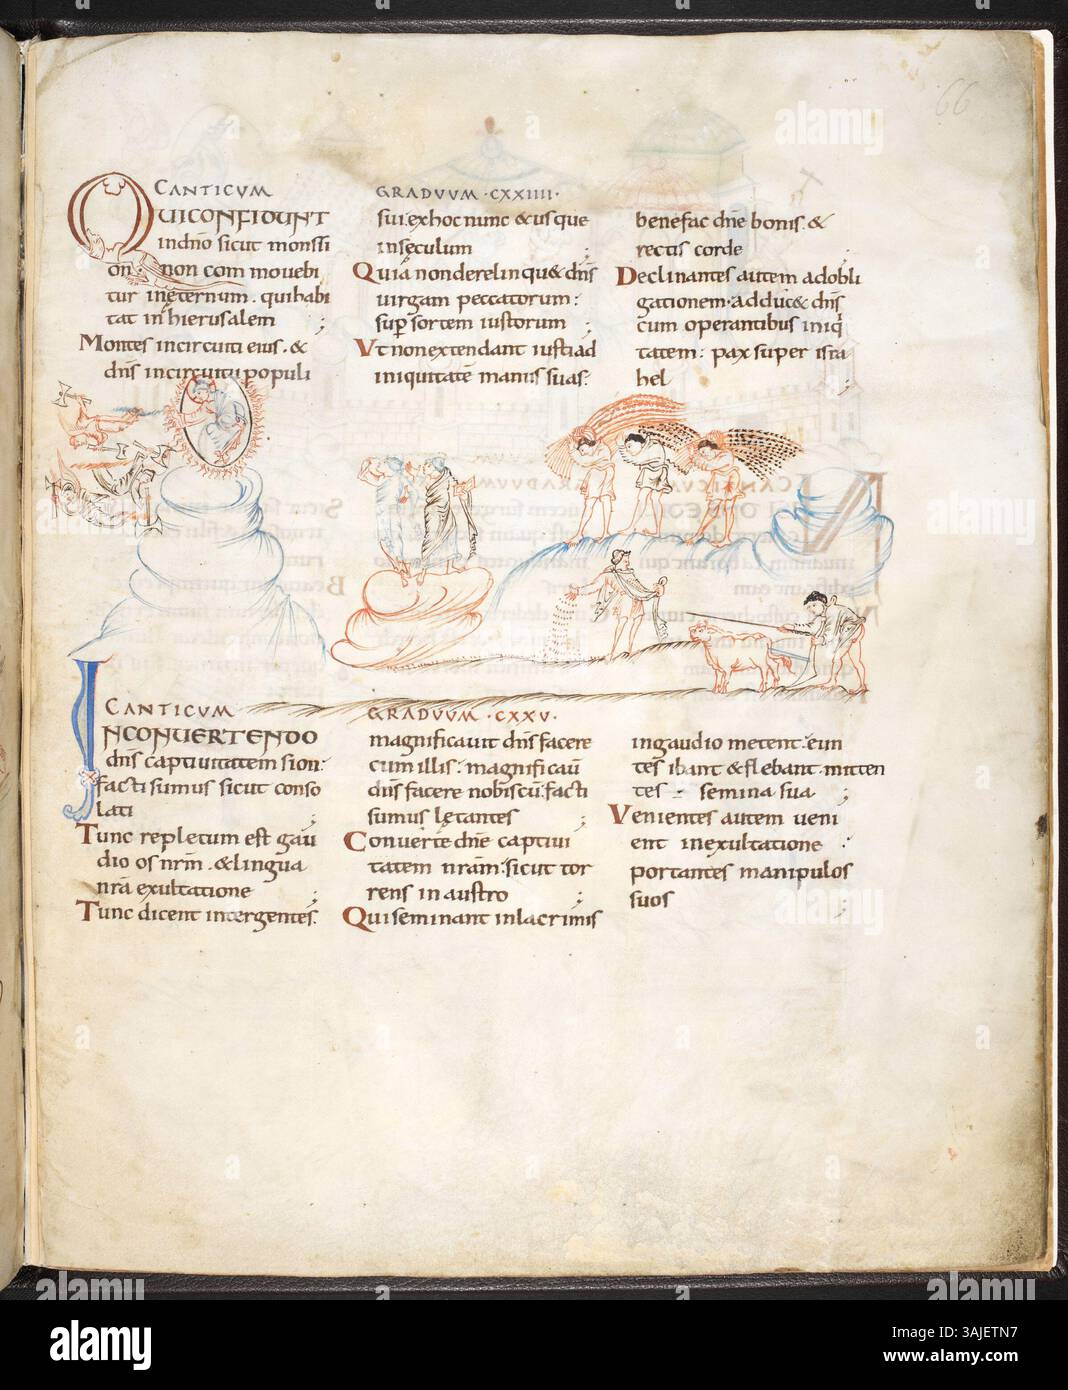 66
CANTICUM GRADUUM · CXXIIII ·
QUICONFIDUNT
indño sicut monssi
on : non com movebi
tur ineternum . quihabi
tat in hierusalem ;
Montes incircuiti eius . &
dñs incircuitu populi
sui . exhocnunc & usque
inseculum
Quia nonderelinqu& dñs
uirgam peccatorum :
sup sortem iustorum ;
Ut nonextendant iustiad
iniquitatē manus suas :
benefac dñe bonis . &
rectis corde ;
Declinantes autem adobli
gationem . adduc& dñs
cum operantibus iniq
tatem : pax super isra
hel ;
CANTICUM GRADUUM · CXXV ·
INCONUERTENDO
dñs captiuitatem sion :
facti sumus sicut conso
lati ;
Tunc repletum est gau
dio os nrm̄ . & lingua
nrā exultatione ;
Tunc dicent intergentes .
magnificauit dñs facere
cum illis : magnificaū
dñs facere nobiscū : facti
sumus letantes ;
Conuerte dñe captiui
tatem nrām : sicut tor
rens in austro ;
Qui seminant inlacrimis
ingaudio metent . eun
tes ibant & flebant . mitten
tes semina sua ;
Venientes autem ueni
ent inexultatione .
portantes manipulos
suos ;
alamy
Image ID: 3AJETN7
www.alamy.com